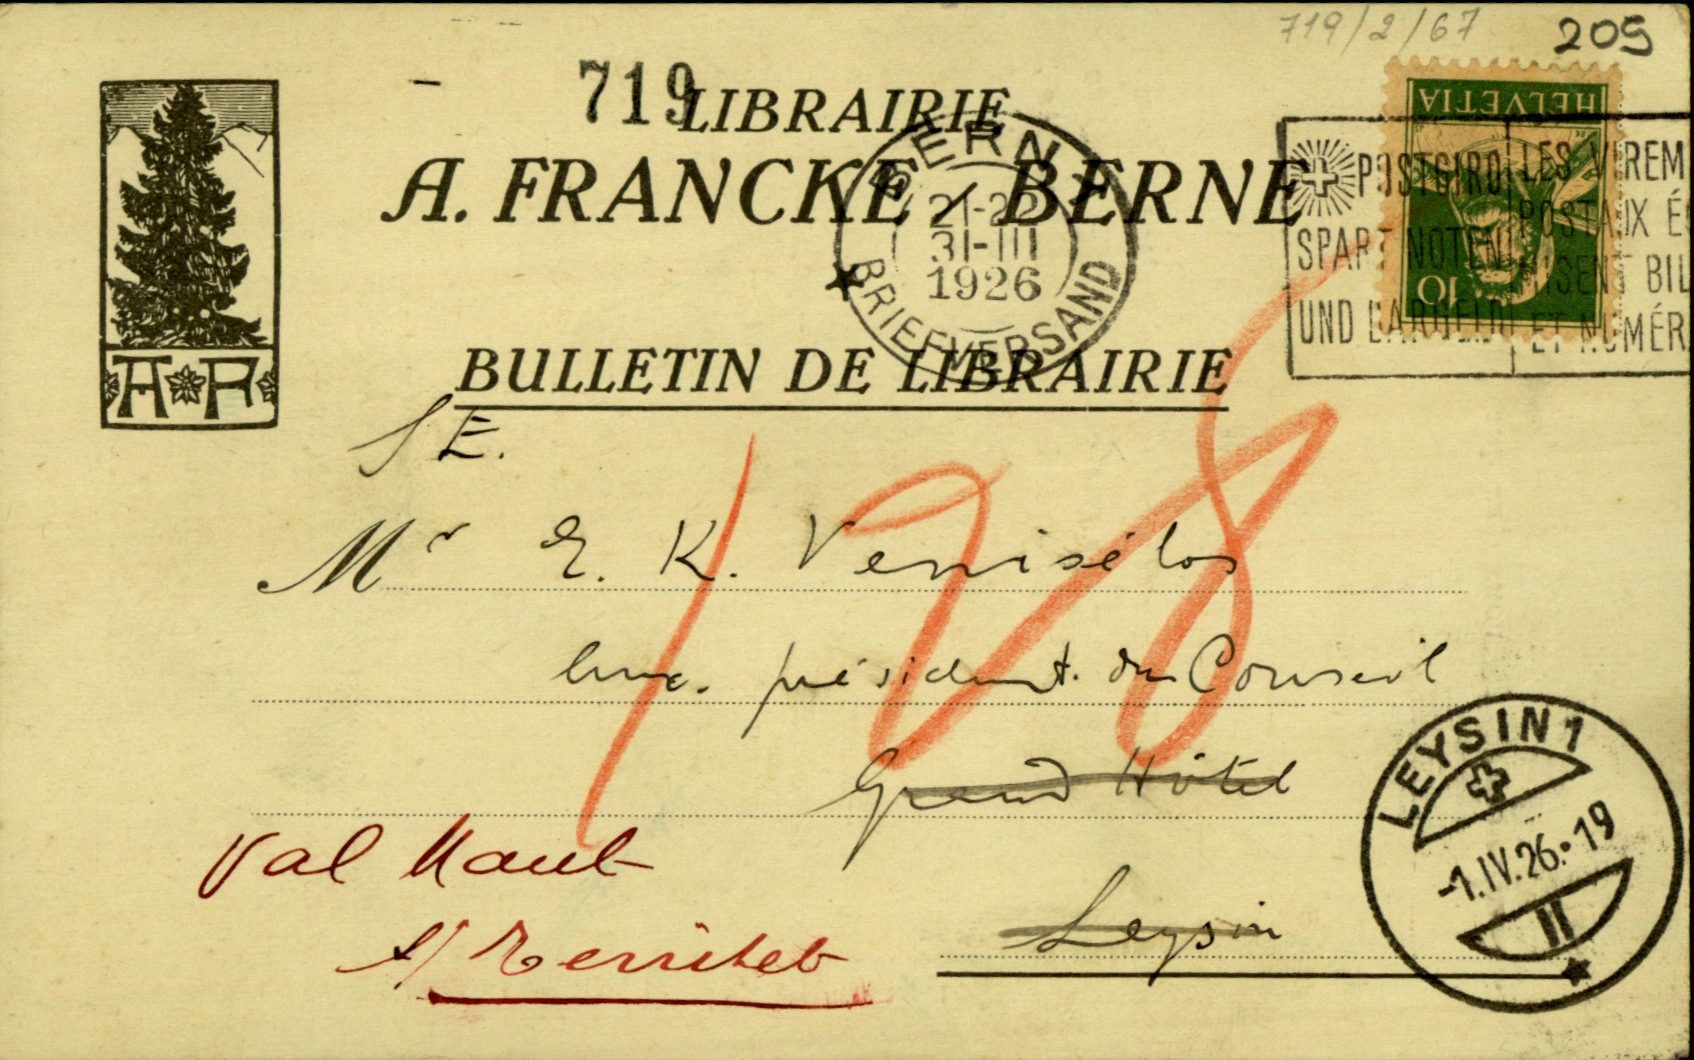 719/2/67
209
719
LIBRAIRIE
A. FRANCKE / BERNE
BERN 1
21-22
31-III
1926
BRIEFVERSAND
HELVETIA
10
POSTGIRO
SPART NOTEN
UND BARGELD
LES VIREM
POSTAUX ÉC
MISENT BIL
ET NUMÉR
BULLETIN DE LIBRAIRIE
A F
S E.
Mr E. K. Venisélos
président du Conseil
Grand Hôtel
Leysin
Val Mont
s/ Territet
LEYSIN 1
-1.IV.26.-19
II